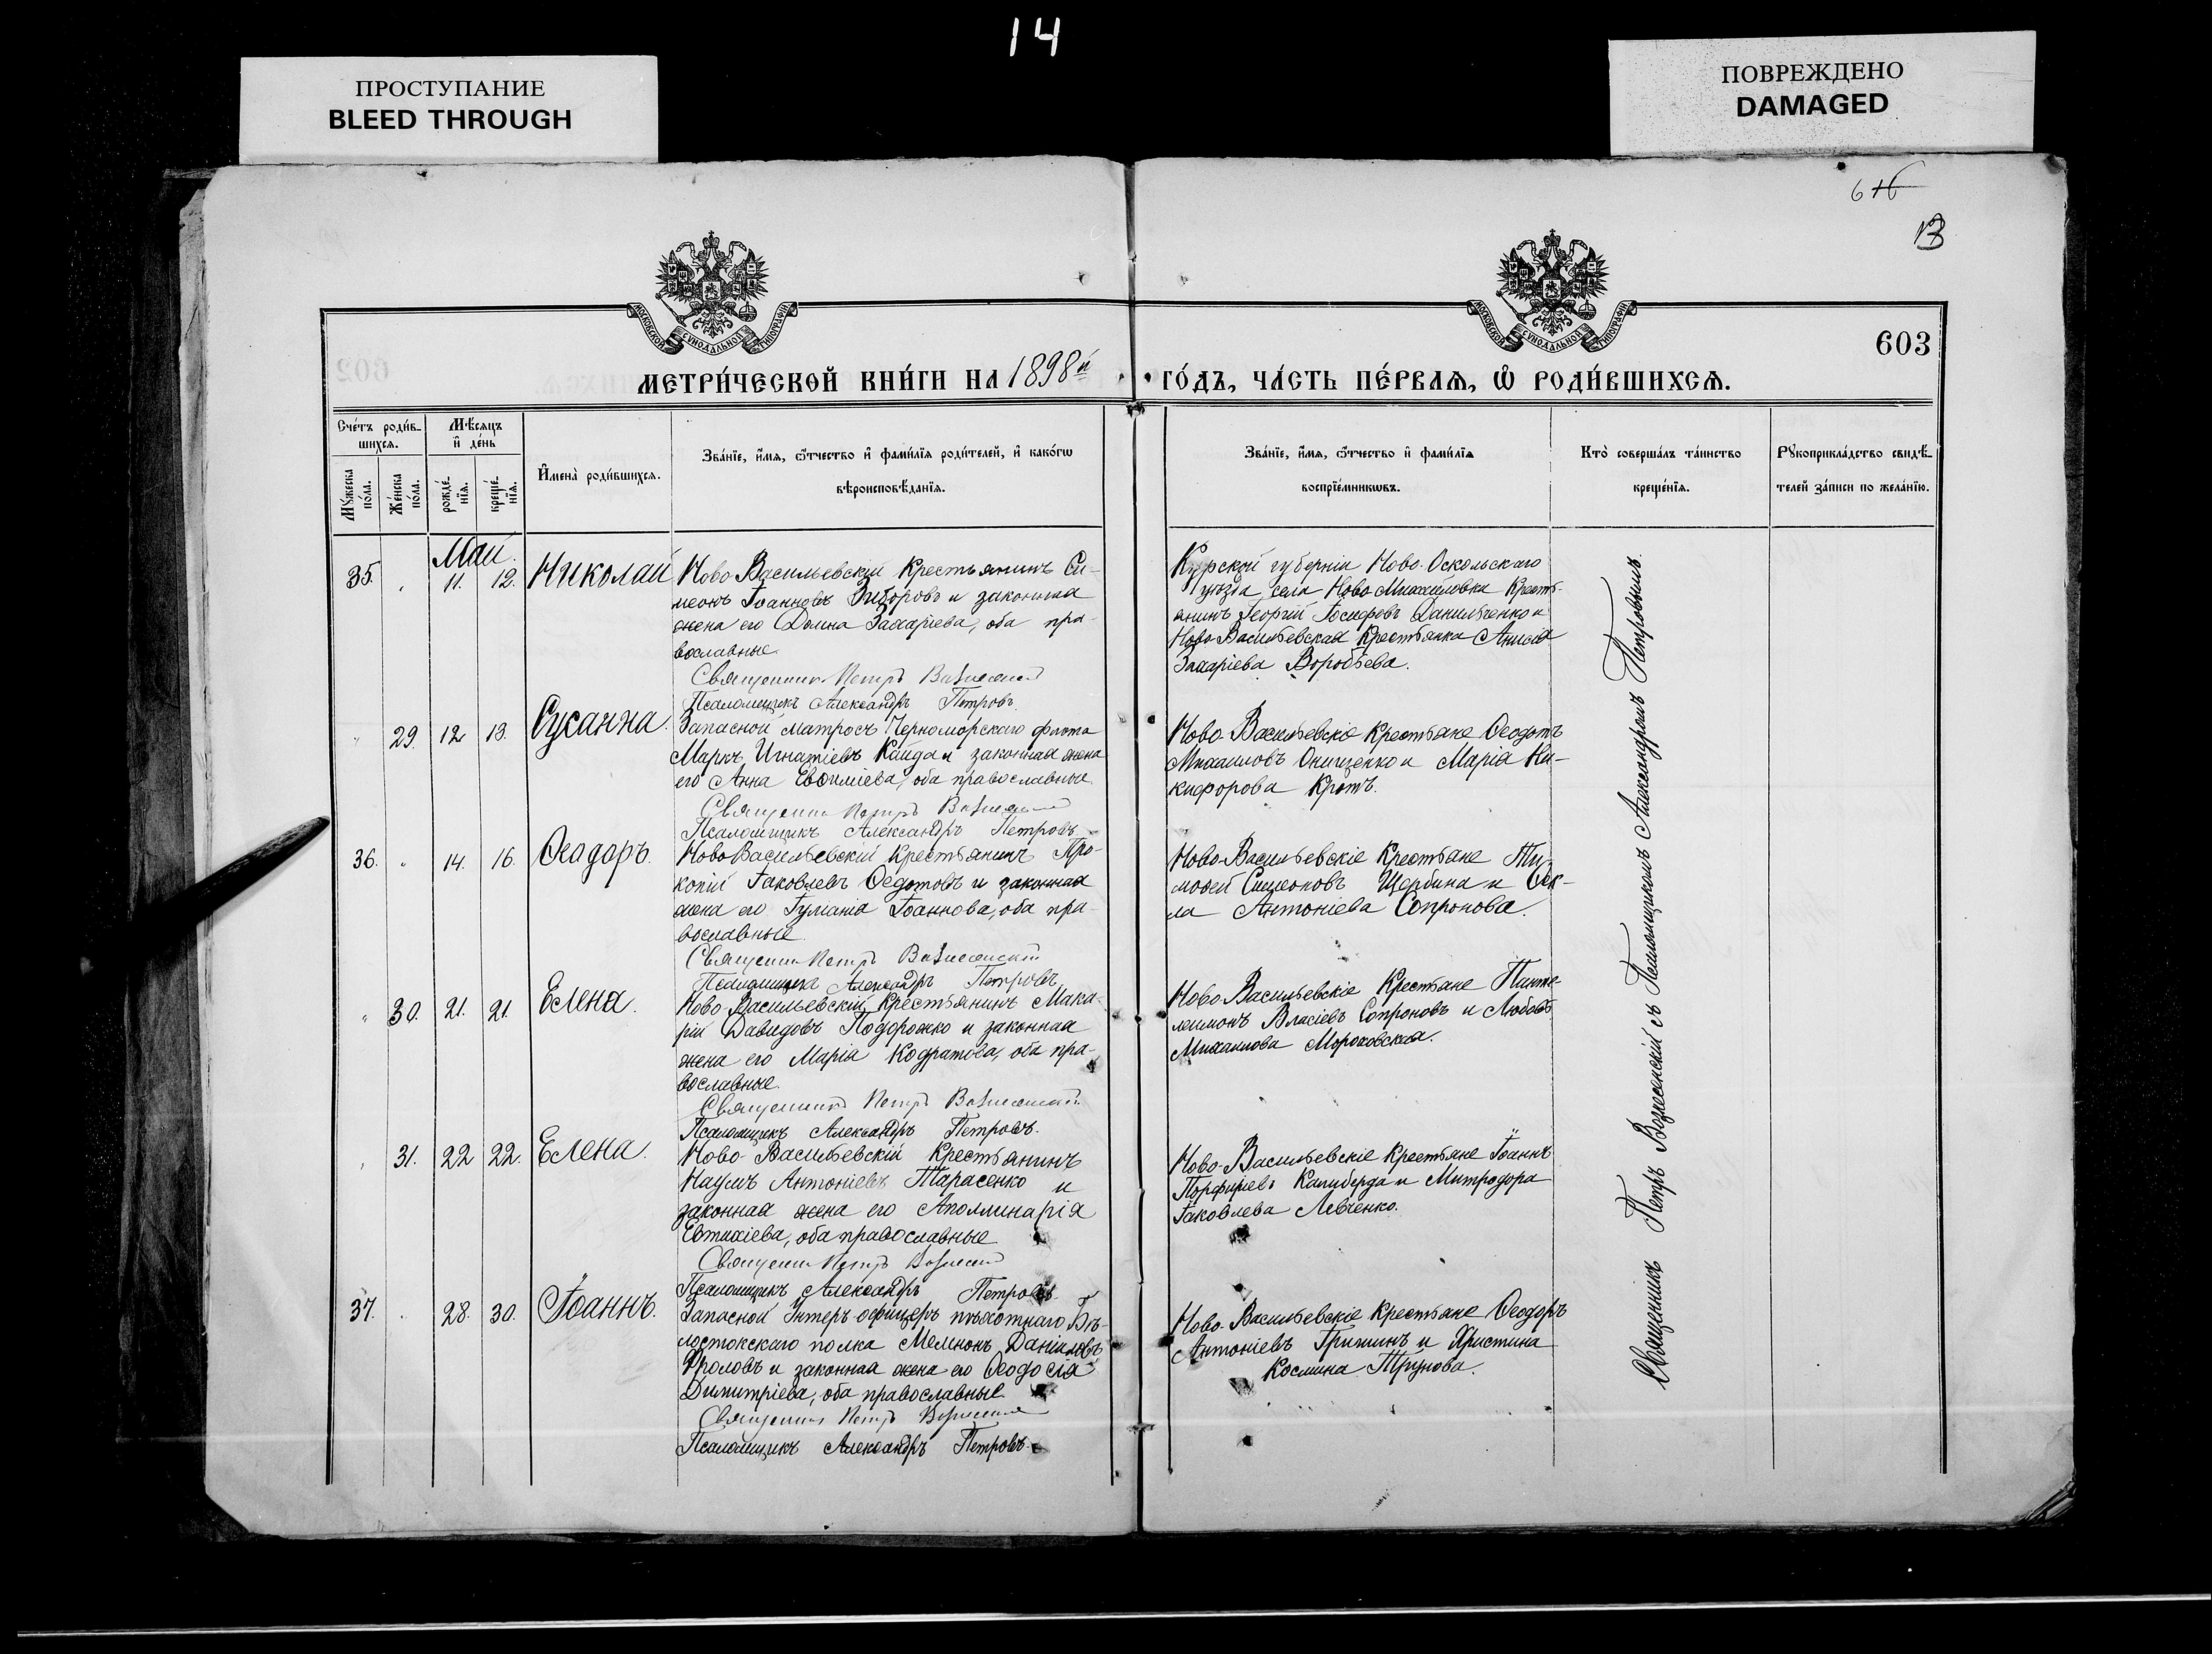 14
ПРОСТУПАНИЕ
BLEED THROUGH
ПОВРЕЖДЕНО
DAMAGED
616
13
МОСКОВСКОЙ СУНОДАЛЬНОЙ ТИПОГРАФІИ
МОСКОВСКОЙ СУНОДАЛЬНОЙ ТИПОГРАФІИ
602
603
МЕТРИ́ЧЕСКОЙ КНИ́ГИ НА 1898й
ГО́ДЪ, ЧА́СТЬ ПЕ́РВАѦ, Ѿ РОДИ́ВШИХСѦ.
Счетъ роди́в-
шихсѧ.
Мѣсѧцъ
и҆ де́нь
Мꙋжеска
по́ла.
Же́нска
по́ла.
рожде́-
нїѧ.
креще́-
нїѧ.
И҆мена̀ роди́вшихсѧ.
Зва́нїе, и҆́мѧ, ѻ҆́тчество и҆ фами́лїѧ роди́телей, и҆ како́гѡ
вѣроисповѣ́данїѧ.
Зва́нїе, и҆́мѧ, ѻ҆́тчество и҆ фами́лїѧ
воспрїе́мникѡвъ.
Кто̀ соверша́лъ та́инство
креще́нїѧ.
Рꙋкоприкла́дство свидѣ́-
телей за́писи по жела́нїю.
Май.
35. " 11. 12. Николай
Ново-Васильевскій Крестьянинъ Си-
меонъ Іоанновъ Зиборовъ и законная
жена его Домна Захаріева, оба пра-
вославные.
Священникъ Петръ Вознесенскій
Псаломщикъ Александръ Петровъ.
Курской губерніи Ново-Оскольскаго
уѣзда, села Ново-Михайловки Кресть-
янинъ Георгій Іосифовъ Данильченко и
Ново-Васильевская Крестьянка Анисія
Захаріева Воробьева.
" 29. 12 13. Сусанна.
Запасной матросъ Черноморскаго флота
Маркъ Игнатіевъ Кайда и законная жена
его Анна Евѳиміева, оба православные.
Священникъ Петръ Вознесенскій
Псаломщикъ Александръ Петровъ
Ново-Васильевскіе Крестьяне Ѳеодотъ
Михаиловъ Онищенко и Марія Ни-
кифорова Кротъ.
36. " 14. 16. Ѳеодоръ.
Ново Васильевскій Крестьянинъ Про-
копій Іаковлевъ Ѳедотовъ и законная
жена его Іуліанія Іоаннова, оба пра-
вославные.
Священникъ Петръ Вознесенскій
Псаломщикъ Александръ Петровъ
Ново-Васильевскіе Крестьяне Ти-
моѳей Симеоновъ Щербина и Ѳек-
ла Антоніева Сопронова.
" 30. 21. 21. Елена.
Ново-Васильевскій Крестьянинъ Мака-
рій Давидовъ Подорожко и законная
жена его Марія Кодратова, оба пра-
вославные.
Священникъ Петръ Вознесенскій
Псаломщикъ Александръ Петровъ.
Ново Васильевскіе Крестьяне Панте-
леимонъ Власіевъ Сопроновъ и Любовь
Михаилова Мороховская.
" 31. 22 22. Елена.
Ново-Васильевскій Крестьянинъ
Наумъ Антоніевъ Тарасенко и
законная жена его Аполлинарія
Евтихіева, оба православные
Священникъ Петръ Вознесенскій
Псаломщикъ Александръ Петровъ
Ново-Васильевскіе Крестьяне Іоаннъ
Порфиріевъ Калиберда и Митродора
Іаковлева Левченко.
37. " 28. 30. Іоаннъ.
Запасной Унтеръ-офицеръ пѣхотнаго Бѣ-
лостокскаго полка Мемнонъ Даніиловъ
Фроловъ и законная жена его Ѳеодосія
Димитріева, оба православные
Священникъ Петръ Вознесенскій
Псаломщикъ Александръ Петровъ
Ново-Васильевскіе Крестьяне Ѳеодоръ
Антоніевъ Гришинъ и Христина
Космина Трунова.
Священникъ Петръ Вознесенскій съ Псаломщикомъ Александромъ Петровымъ.